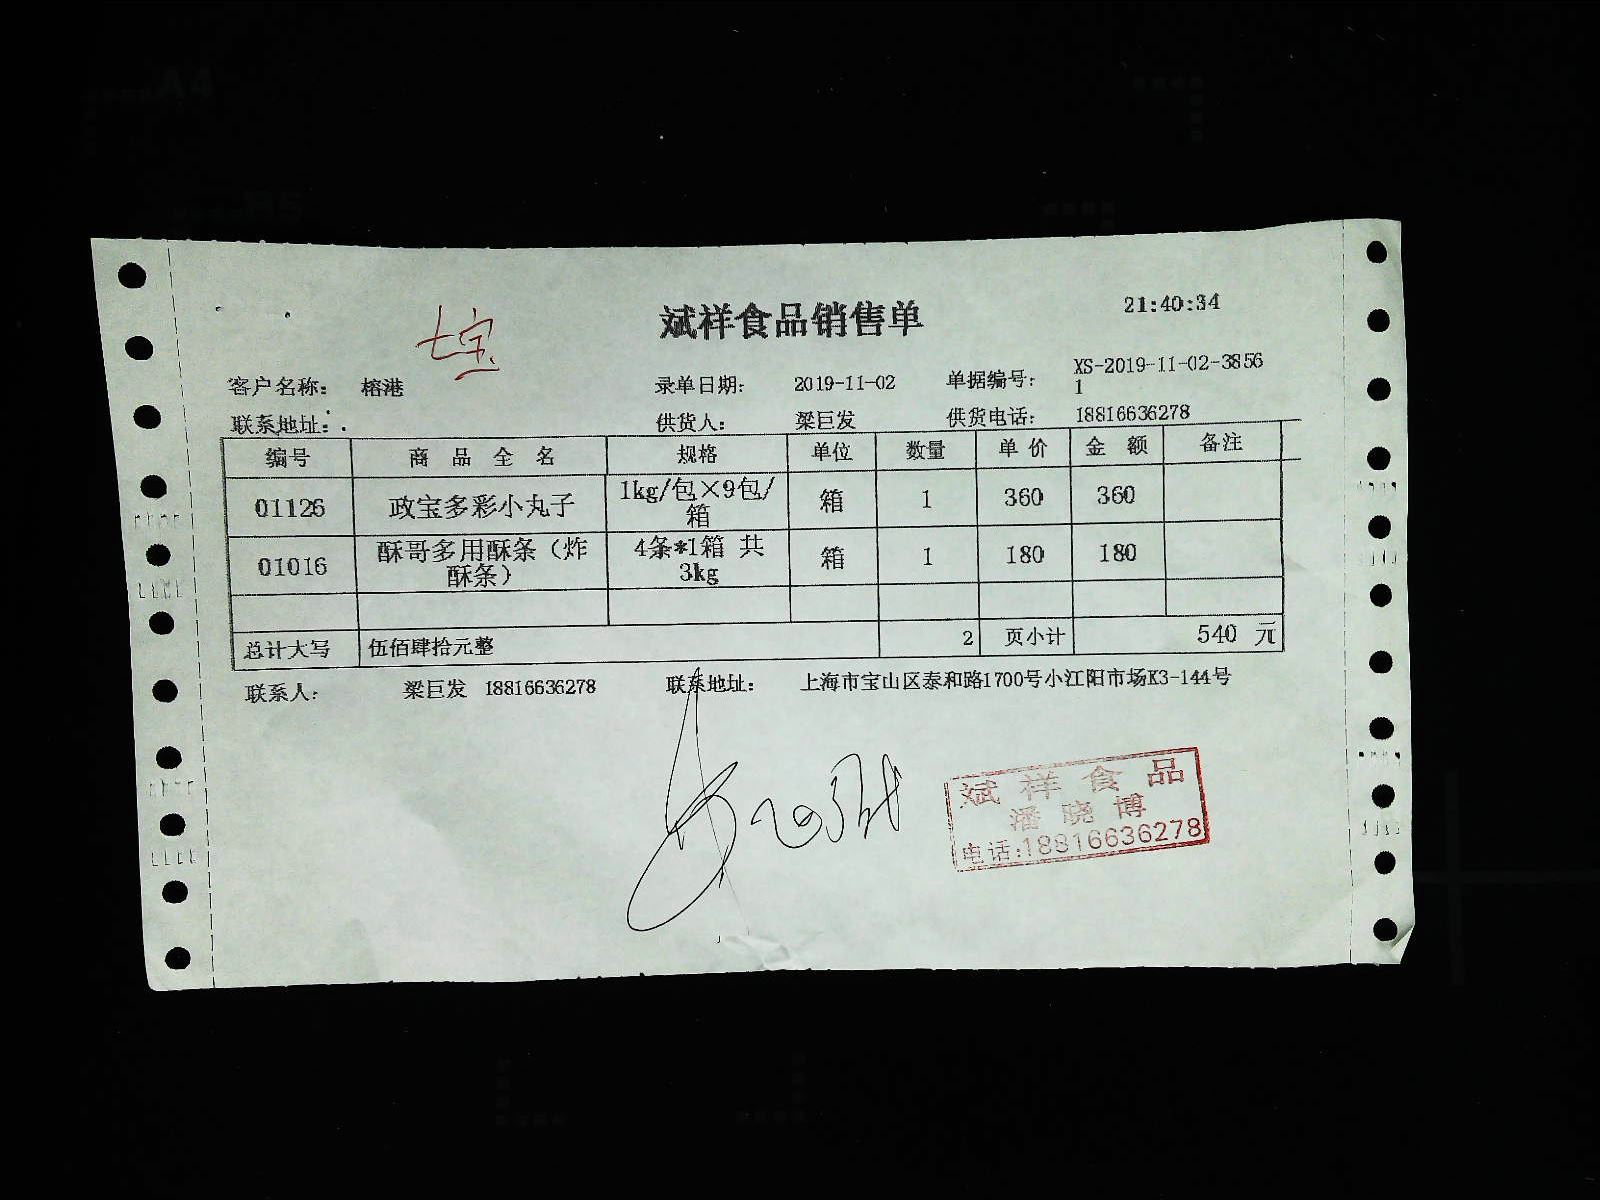 斌祥食品销售单
21:40:34
七宝
客户名称: 榕港 录单日期: 2019-11-02 单据编号: XS-2019-11-02-3856
1
联系地址: . 供货人: 梁巨发 供货电话: 18816636278
编号 商品全名 规格 单位 数量 单价 金额 备注
01126 政宝多彩小丸子 1kg/包×9包/箱 箱 1 360 360
01016 酥哥多用酥条（炸酥条） 4条*1箱 共3kg 箱 1 180 180
总计大写 伍佰肆拾元整 2 页小计 540 元
联系人: 梁巨发 18816636278 联系地址: 上海市宝山区泰和路1700号小江阳市场K3-144号
斌祥食品
潘晓博
电话:18816636278